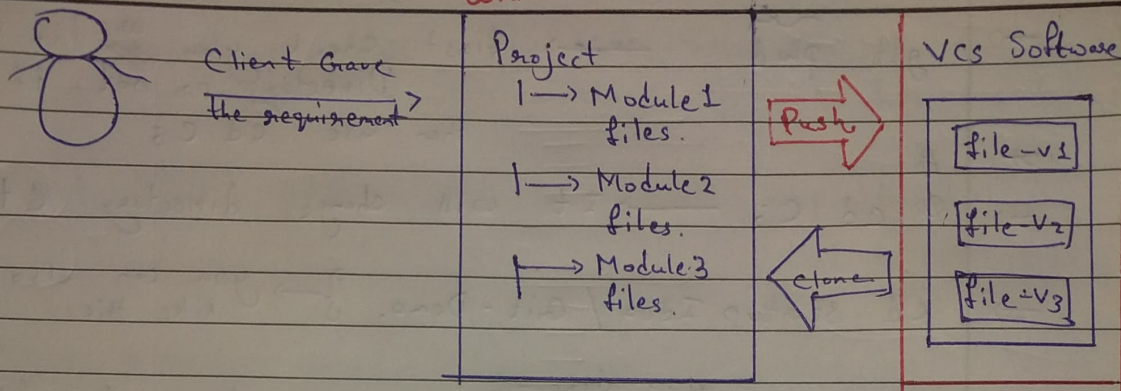 Client Gave
the requirement
Project
Module 1
files.
Module 2
files.
Module 3
files.
Push
Clone
VCS Software
file-v1
file-v2
file-v3